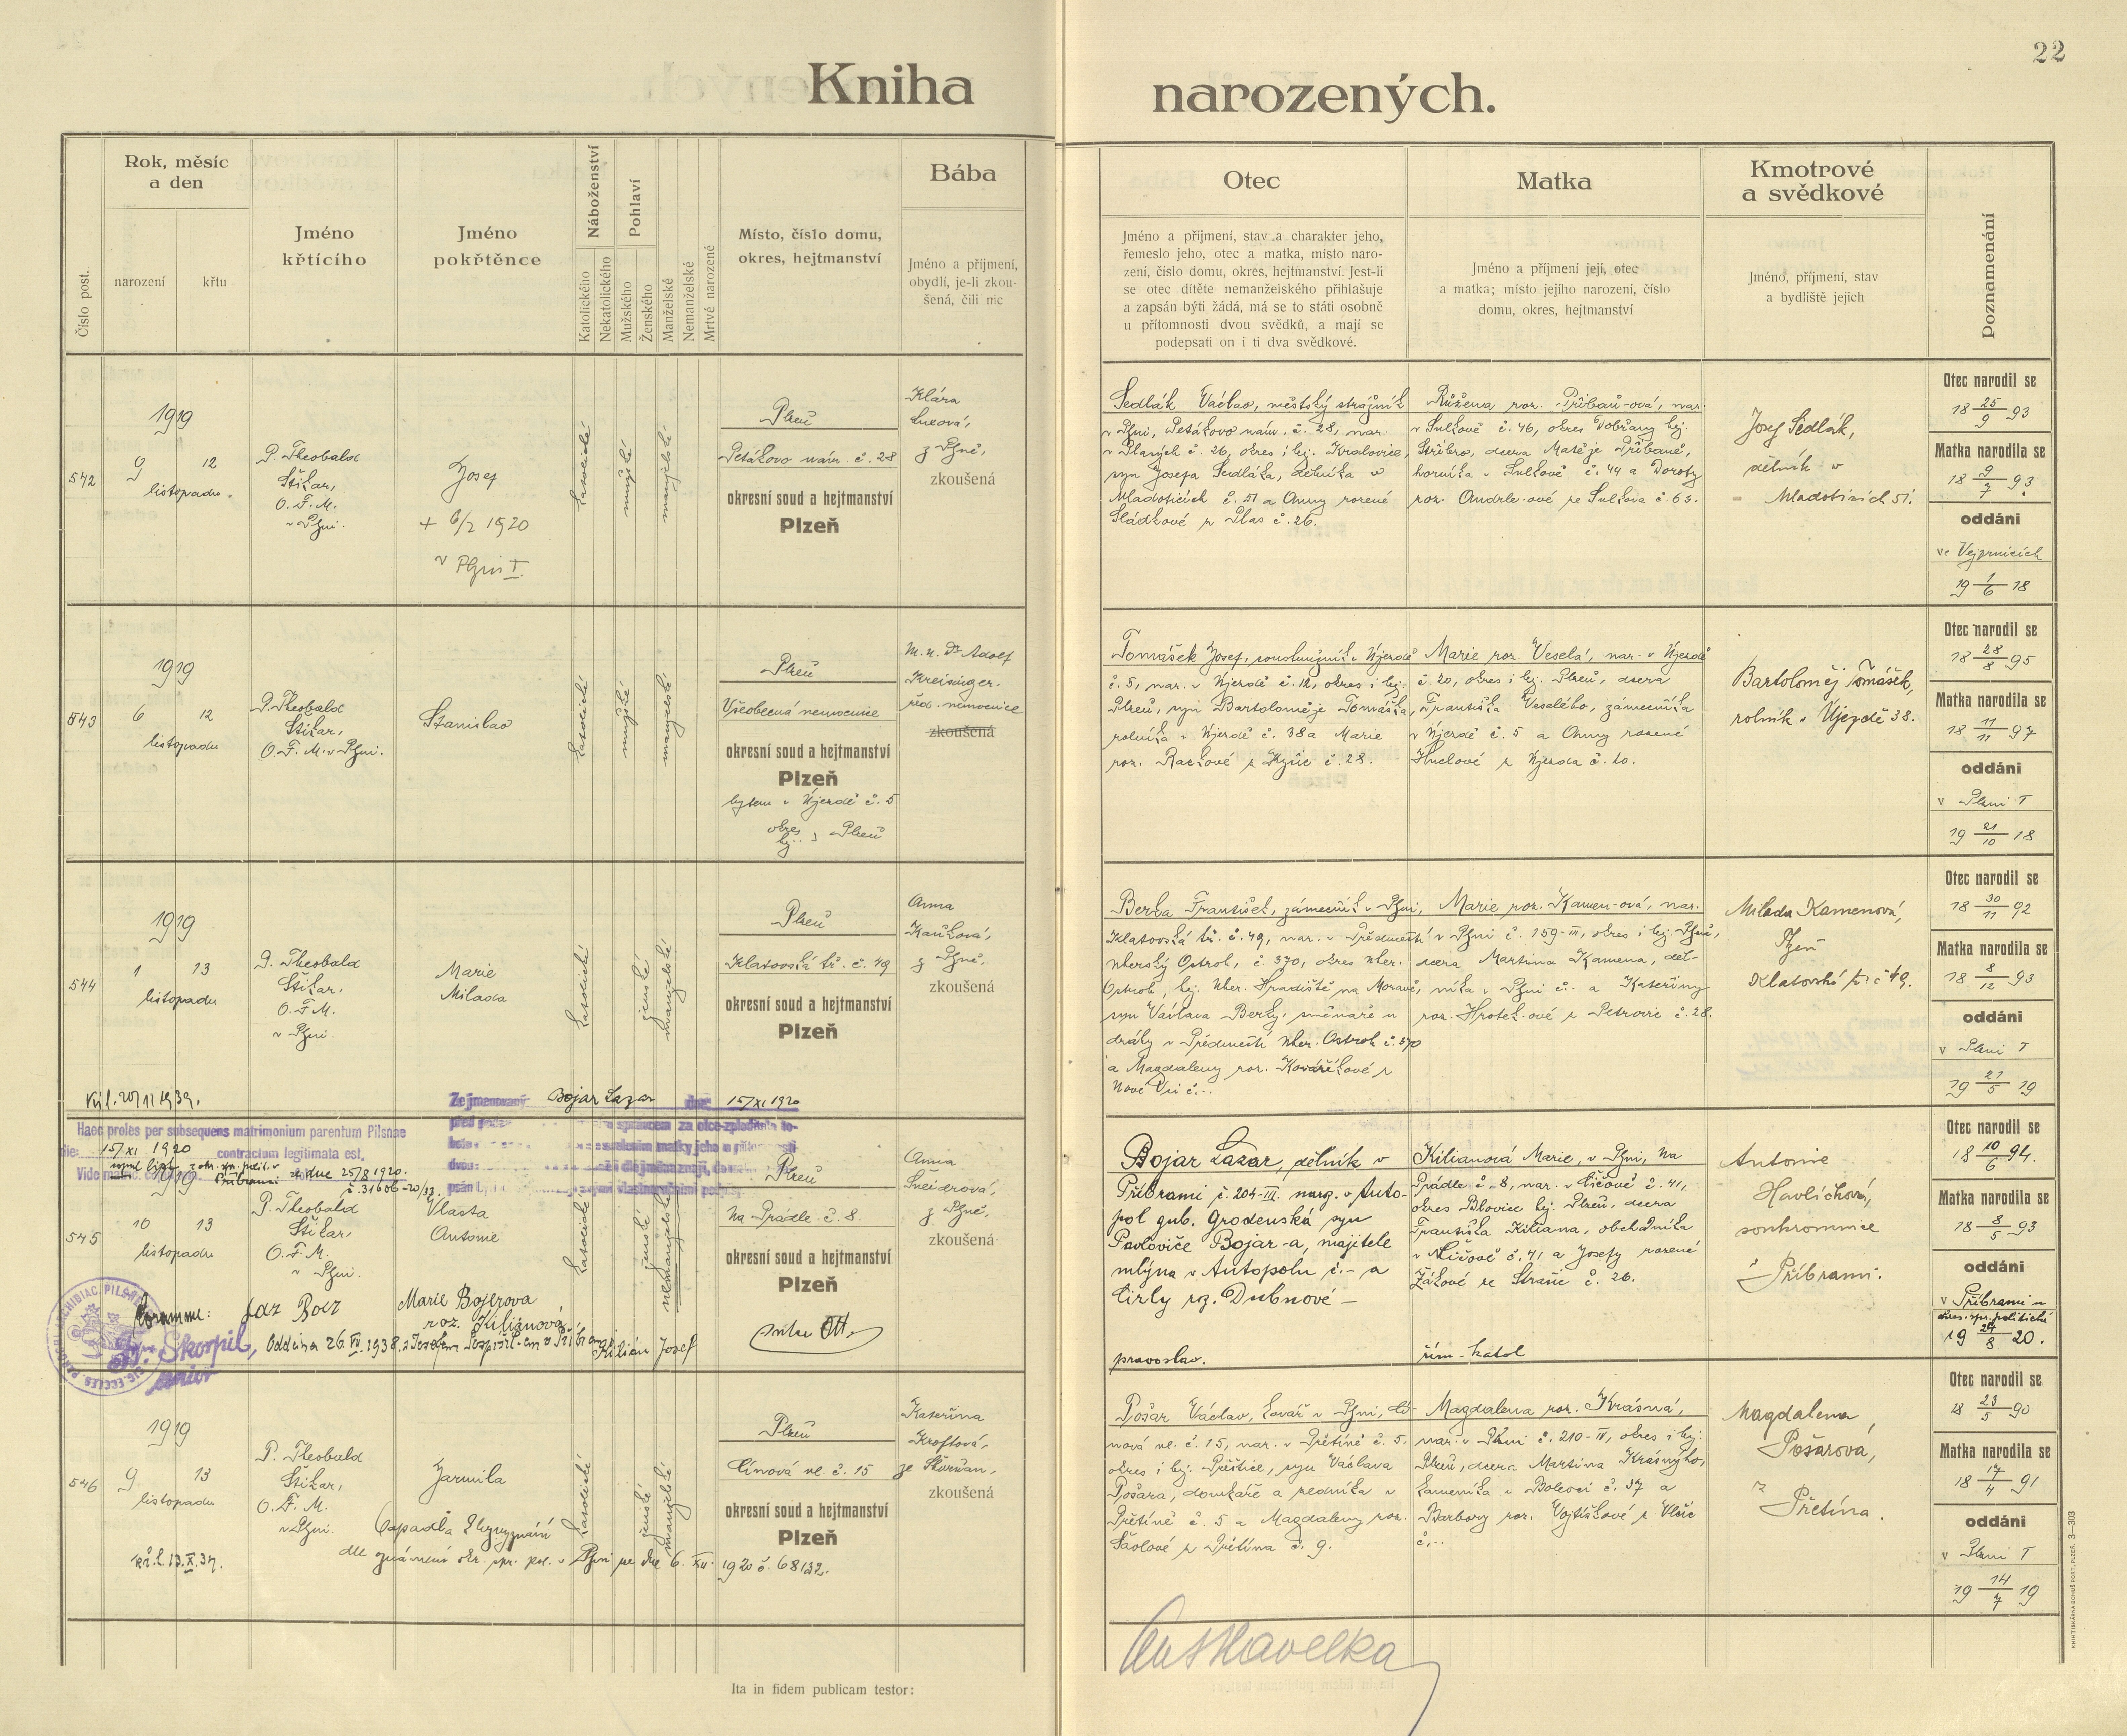 22
Kniha narozených.
Číslo post.
Rok, měsíc
a den
narození
křtu
Jméno
křtícího
Jméno
pokřtěnce
Náboženství
Katolického
Nekatolického
Pohlaví
Mužského
Ženského
Manželské
Nemanželské
Mrtvé narozené
Místo, číslo domu,
okres, hejtmanství
Bába
Jméno a příjmení,
obydlí, je-li zkou-
šená, čili nic
Otec
Jméno a příjmení, stav a charakter jeho,
řemeslo jeho, otec a matka, místo naro-
zení, číslo domu, okres, hejtmanství. Jest-li
se otec dítěte nemanželského přihlašuje
a zapsán býti žádá, má se to státi osobně
u přítomnosti dvou svědků, a mají se
podepsati on i ti dva svědkové.
Matka
Jméno a příjmení její, otec
a matka; místo jejího narození, číslo
domu, okres, hejtmanství
Kmotrové
a svědkové
Jméno, příjmení, stav
a bydliště jejich
Poznamenání
542
1919
9 12
listopadu.
P. Theobald
Štikar,
O. F. M.
v Plzni.
Josef
+ 6/2 1920
v Plzni I.
katolické
mužské
manželské
Plzeň
Petákovo nám. č. 28
okresní soud a hejtmanství
Plzeň
Klára
z Plzně,
zkoušená
Sedlák Václav, městský strážník
v Plzni, Petákovo nám. č. 28, nar.
v Plasých č. 26, okres i hej. Kralovice,
syn Josefa Sedláka, dělníka v
Mladoticích č. 51 a Anny rozené
Sládkové z Plas č. 26.
Růžena roz. Přibaň-ová, nar.
v Sulkově č. 46, okres Dobřany hej.
Stříbro, dcera Matěje Přibaně,
horníka v Sulkově č. 44 a Doroty
roz. Andrle-ové ze Sulkova č. 63.
Josef Sedlák,
dělník v
Mladoticích 51.
Otec narodil se
18 25/9 93
Matka narodila se
18 9/7 93
oddáni
ve Vejprnicích
19 1/6 18
543
1919
6 12
listopadu
P. Theobald
Štikar,
O. F. M. v Plzni.
Stanislav
katolické
mužské
manželské
Plzeň
Všeobecná nemocnice
okresní soud a hejtmanství
Plzeň
bytem v Újezdě č. 5
okres
hej. } Plzeň
M. u. Dr. Adolf
Kreisinger.
řed. nemocnice
zkoušená
Tomášek Josef, soustružník v Újezdě
č. 5, nar. v Újezdě č. 12, okres i hej.
Plzeň, syn Bartoloměje Tomáška,
rolníka v Újezdě č. 38 a Marie
roz. Rackové z Kyšic č. 28.
Marie roz. Veselá, nar. v Újezdě
č. 20, okres i hej. Plzeň, dcera
Františka Veselého, zámečníka
v Újezdě č. 5 a Anny rozené
Huclové z Újezda č. 20.
Bartoloměj Tomášek,
rolník v Újezdě 38.
Otec narodil se
18 28/8 95
Matka narodila se
18 11/11 97
oddáni
v Plzni I
19 21/10 18
544
1919
1 13
listopadu
P. Theobald
Štikar,
O. F. M.
v Plzni.
Marie
Milada
katolické
ženské
manželské
Plzeň
Klatovská tř. č. 49
okresní soud a hejtmanství
Plzeň
Anna
Kaňková,
z Plzně,
zkoušená
Berka František, zámečník v Plzni,
Klatovská tř. č. 49, nar. v Předměstí
Uherský Ostroh, č. 370, okres Uher.
Ostroh, hej. Uher. Hradiště na Moravě,
syn Václava Berky, směnaře u
dráhy v Předměstí Uher. Ostroh č. 370
a Magdaleny roz. Kovaříkové z
Nové Vsi č. ..
Marie roz. Kamen-ová, nar.
v Plzni č. 159-III, okres i hej. Plzeň,
dcera Martina Kamena, děl-
níka v Plzni č. .. a Kateřiny
roz. Hrotek-ové z Petrovic č. 28.
Milada Kamenová,
Plzeň
Klatovská tř. č. 49.
Otec narodil se
18 30/11 92
Matka narodila se
18 8/12 93
oddáni
v Plzni I
19 21/5 19
Výl. 20/11 1939.
Haec proles per subsequens matrimonium parentum Pilsnae
die: 15/XI 1920 contractum legitimata est.
ze dne 25/8 1920.
č. 31606-20/33.
Zejmenovaný Bojar Lazar dne 15/XI 1920
545
1919
10 13
listopadu
P. Theobald
Štikar,
O. F. M.
v Plzni.
Vlasta
Antonie
katolické
ženské
nemanželské
Plzeň
Na Prádle č. 8.
okresní soud a hejtmanství
Plzeň
Anna
Šneiderová,
z Plzně,
zkoušená
Marie Bojerova
roz. Kiliánová
Kilián Josef
Škorpil,
Oddána 26. VII. 1938.
Bojar Lazar, dělník v
Příbrami č. 204-III. narz. v Auto-
pol gub. Grodenská syn
Pavloviče Bojar-a, majitele
mlýna v Autopolu č.- a
Cirly roz. Dubnové -
pravoslav.
Kilianová Marie, v Plzni, Na
Prádle č. 8, nar. v Číčově č. 41,
okres Blovice hej. Plzeň, dcera
Františka Kiliana, obchodníka
v Číčově č. 41 a Josefy rozené
Žákové ze Štrasic č. 26.
řím-katol
Antonie
Havlíchová,
soukromnice
v Příbrami.
Otec narodil se
18 10/6 94.
Matka narodila se
18 8/5 93
oddáni
v Příbrami u
okres. spr. politické
19 24/8 20.
546
1919
9 13
listopadu
P. Theobald
Štikar,
O. F. M.
v Plzni.
Jarmila
katolické
ženské
manželské
Plzeň
Cínová ul. č. 15
okresní soud a hejtmanství
Plzeň
Kateřina
Kroftová,
ze Škvrňan,
zkoušená
kř. l. 13. X. 37.
dle oznámení okr. spr. pol. v Plzni ze dne 6. XII. 1920 č. 68132.
Pošar Václav, kovář v Plzni, Cí-
nová ul. č. 15, nar. v Přetíně č. 5,
okres i hej. Přeštice, syn Václava
Pošara, domkáře a zedníka v
Přetíně č. 5 a Magdaleny roz.
Šavlové z Přetína č. 9.
Magdalena roz. Krásná,
nar. v Plzni č. 210-II, okres i hej.
Plzeň, dcera Martina Krásného,
kameníka v Bolevci č. 37 a
Barbory roz. Vojtíškové z Vlčic
č. ..
Magdalena
Pošarová,
z
Přetína.
Otec narodil se
18 23/5 90
Matka narodila se
18 17/4 91
oddáni
v Plzni I
19 14/7 19
Ant Havelka
Ita in fidem publicam testor:
KNIHTISKÁRNA BOHUŠ PORT, PLZEŇ. 3—303